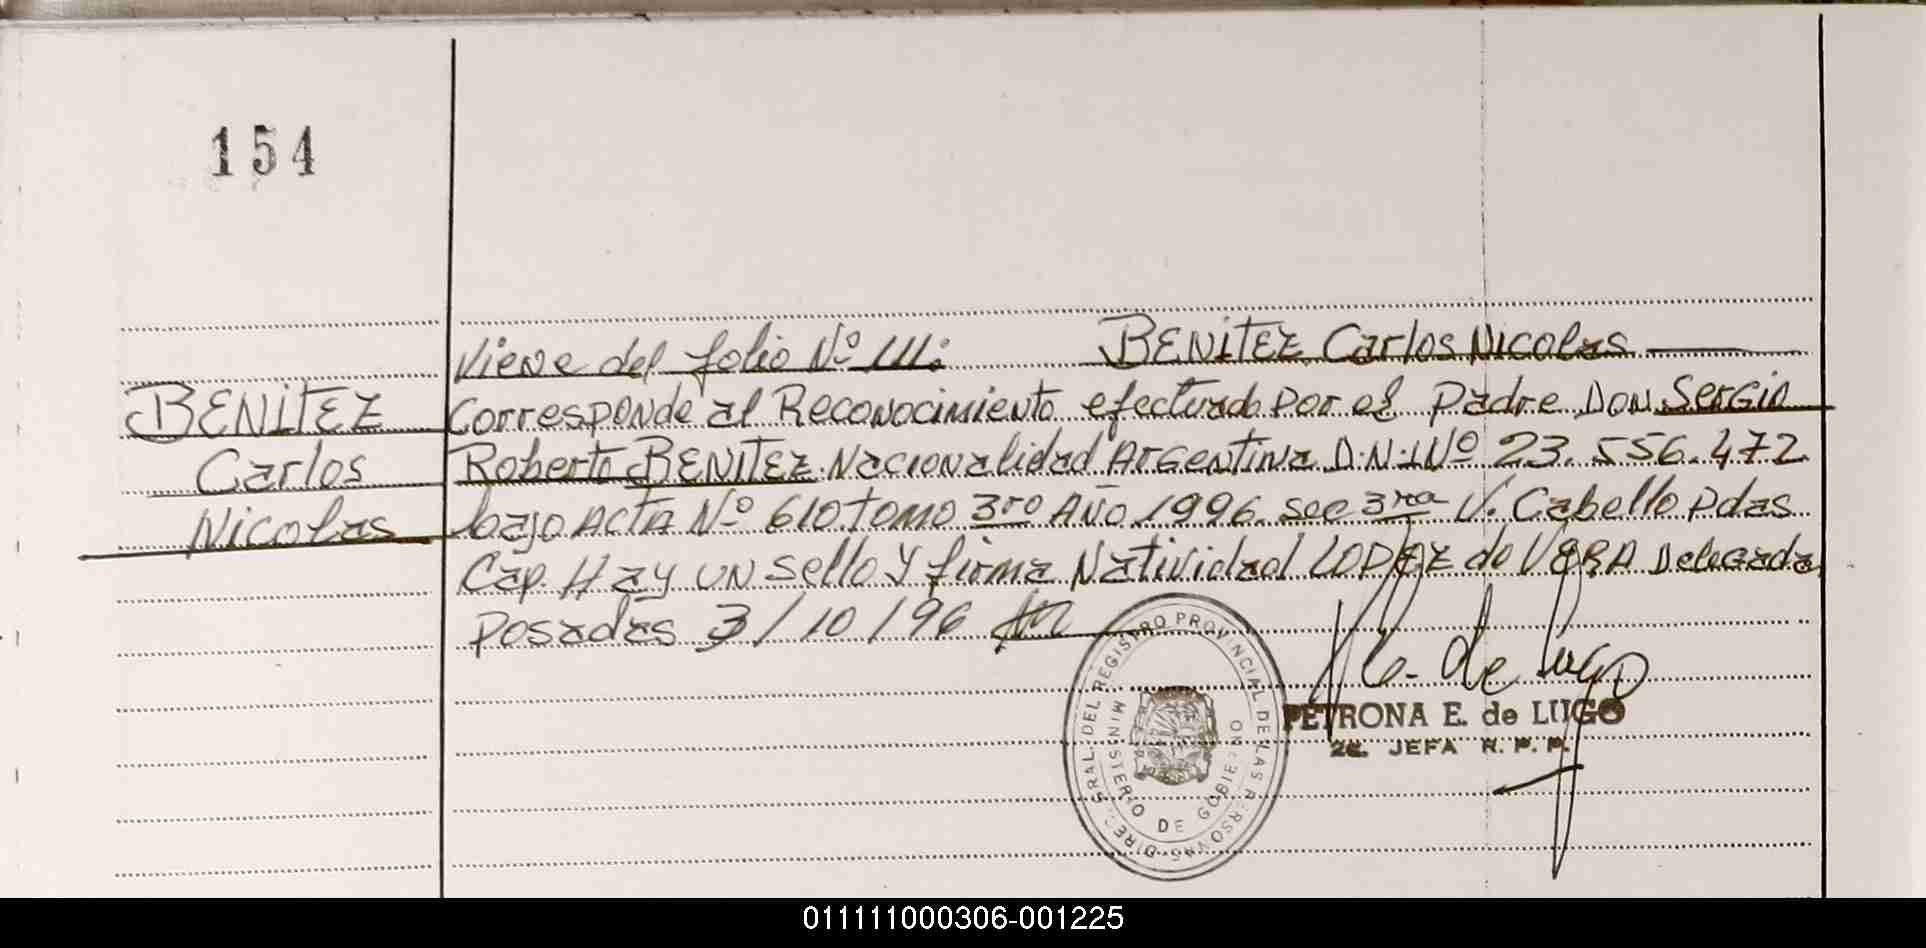 154
Viene del folio Nº 111: BENITEZ Carlos Nicolas
BENITEZ
Carlos
Nicolas
Corresponde al Reconocimiento efectuado por el padre Don Sergio
Roberto BENITEZ. Nacionalidad Argentina D.N.I Nº 23.556.472
bajo ACTA Nº 610 tomo 3ro Año 1996. sec 3ra V. Cabello Pdas
Cap. Hay un sello y firma Natividad LOPEZ de VERA Delegada
Posadas 3/10/96
DIREC. GRAL. DEL REGISTRO PROVINCIAL DE LAS PERSONAS
MINISTERIO DE GOBIERNO
de Lugo
PETRONA E. de LUGO
2a. JEFA R. P. P.
011111000306-001225